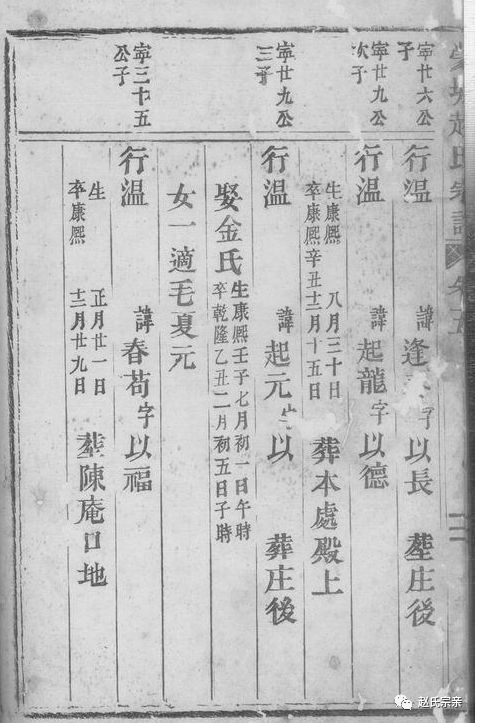 趙氏宗譜 卷五
寧廿六公子
行溫 諱逢 字以長 塟庄後
寧廿九公次子
行溫 諱起龍字以德
生康熙 八月三十日
卒康熙辛丑十二月十五日
葬本處殿上
寧廿九公三子
行溫 諱起元字以 葬庄後
娶金氏
生康熙壬子七月初一日午時
卒乾隆乙丑二月初五日子時
女一適毛夏元
寧三十五公子
行溫 諱春茍字以福
生 正月廿一日
卒康熙 十二月廿九日
塟陳庵口地
赵氏宗亲